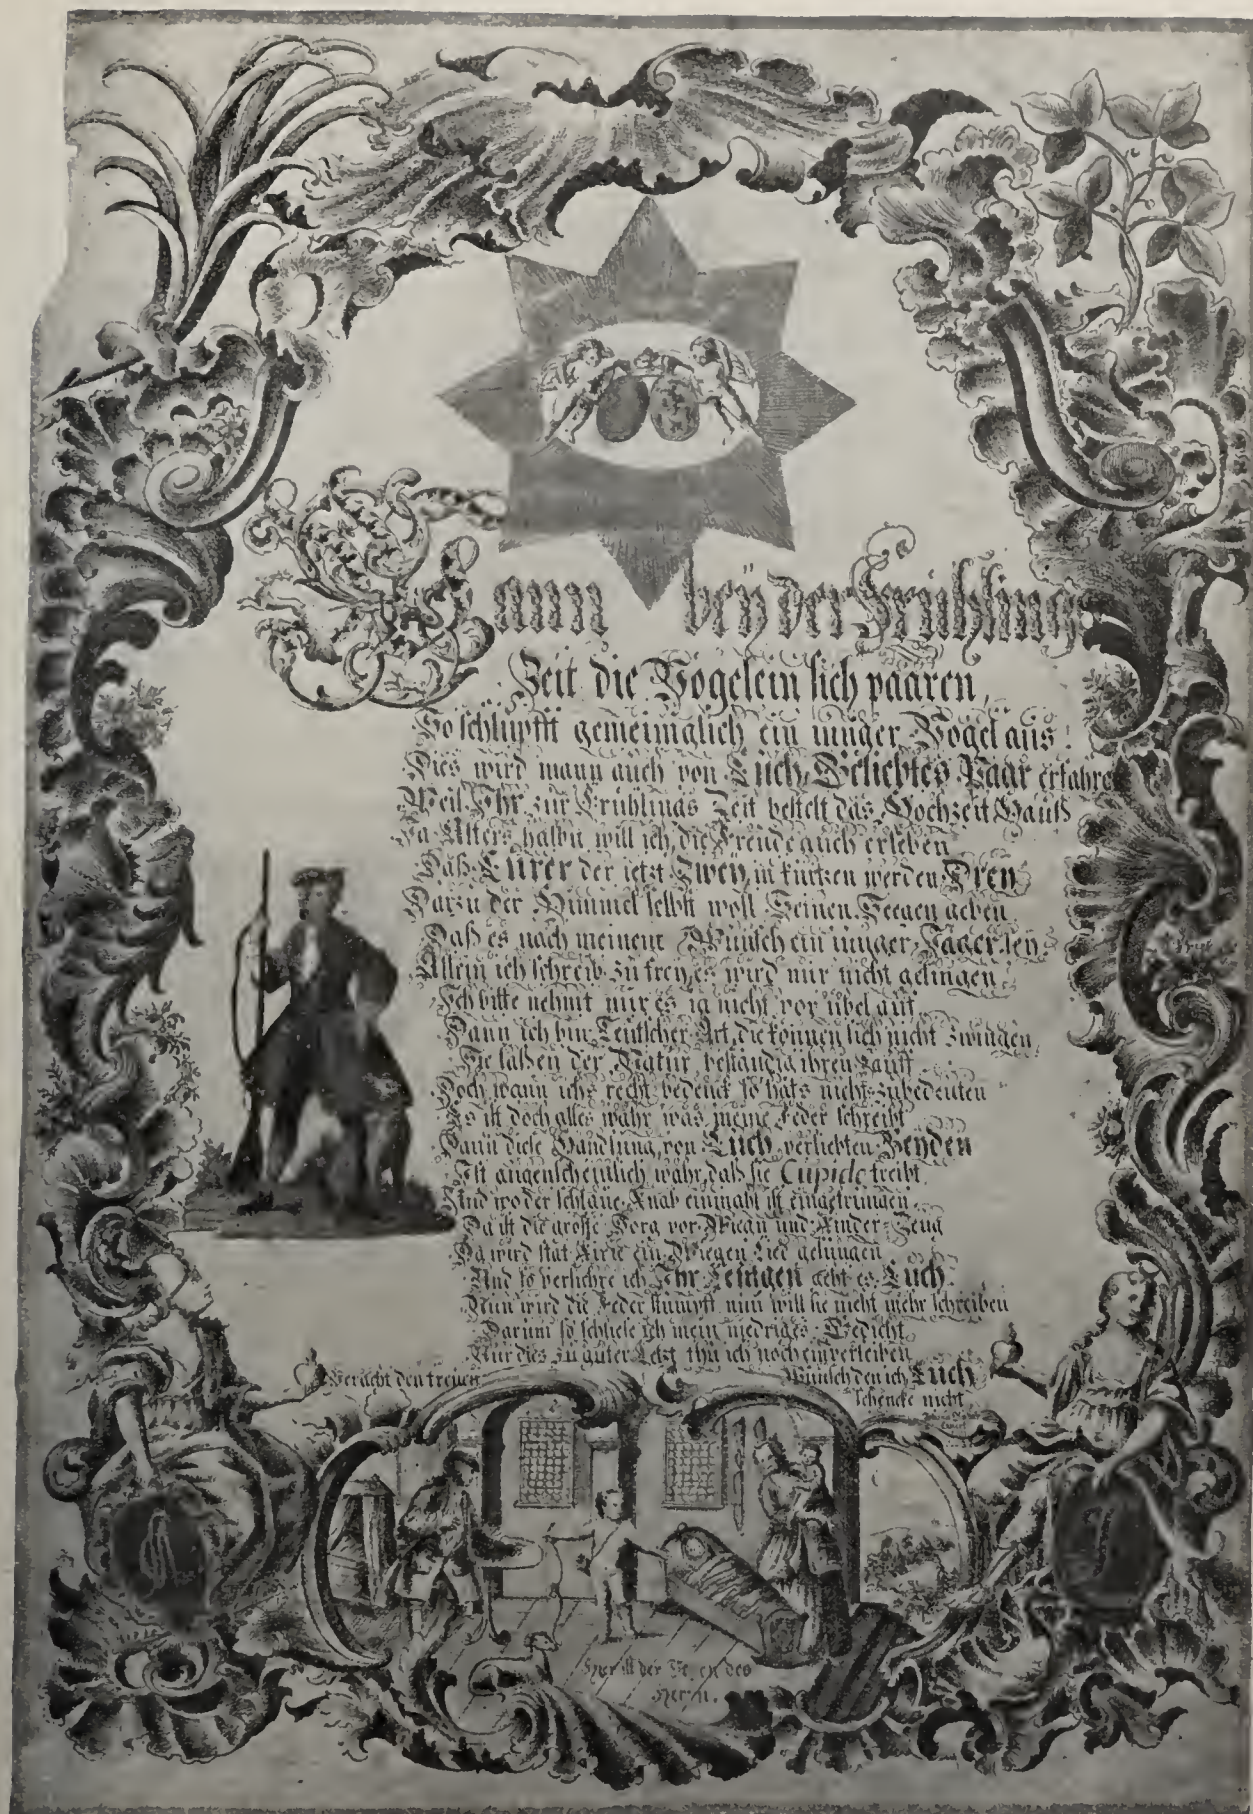 Wann bey der Frühling
Zeit die Vögelein sich paaren,
So schlupfft gemeinglich ein iunger Vogel aus:
Dies wird mann auch von Euch, Beliebtes Paar erfahre
Weil Ihr zur Frühlings Zeit bestelt das Hochzeit Hauß
Alters halbn will ich die Freude auch erleben
Daß Eurer der ietzt Zwey, in kurtzen werden Drey
Darzu der Himmel selbst woll Seinen Seegen geben
Daß es nach meinem Wunsch ein iunger Jäger sey.
Allein ich schreib zu frey, es wird mir nicht gelingen
Ich bitte nehmt mir es ia nicht vor übel auf
Dann ich bin Teutscher Art, die können sich nicht zwingen,
Sie laßen der Natur beständig ihren Lauff
Doch wann ichs recht bedenck so hats nicht zubedeuten
Es ist doch alles wahr was meine Feder schreibt
Dann diese Handlung von Euch verliebten Beyden
Ist augenscheinlich wahr, daß sie Cupido treibt.
Und wo der schlaue Knab einmahl ist eingetrungen
Da ist die grosse Sorg vor Wiegn und Kinder-Zeug
Da wird stat ein Wiegen Lied gesungen
Und so versichre ich Ihr geht es Euch.
Nun wird die Feder stumpff nun will sie nicht mehr schreiben
Darum so schliese ich mein niedriges Gedicht
Nur dies zu guter Letzt thu ich noch einverleiben
Veracht den treuen Wunsch den ich Euch
schencke nicht
der des
Herrn.